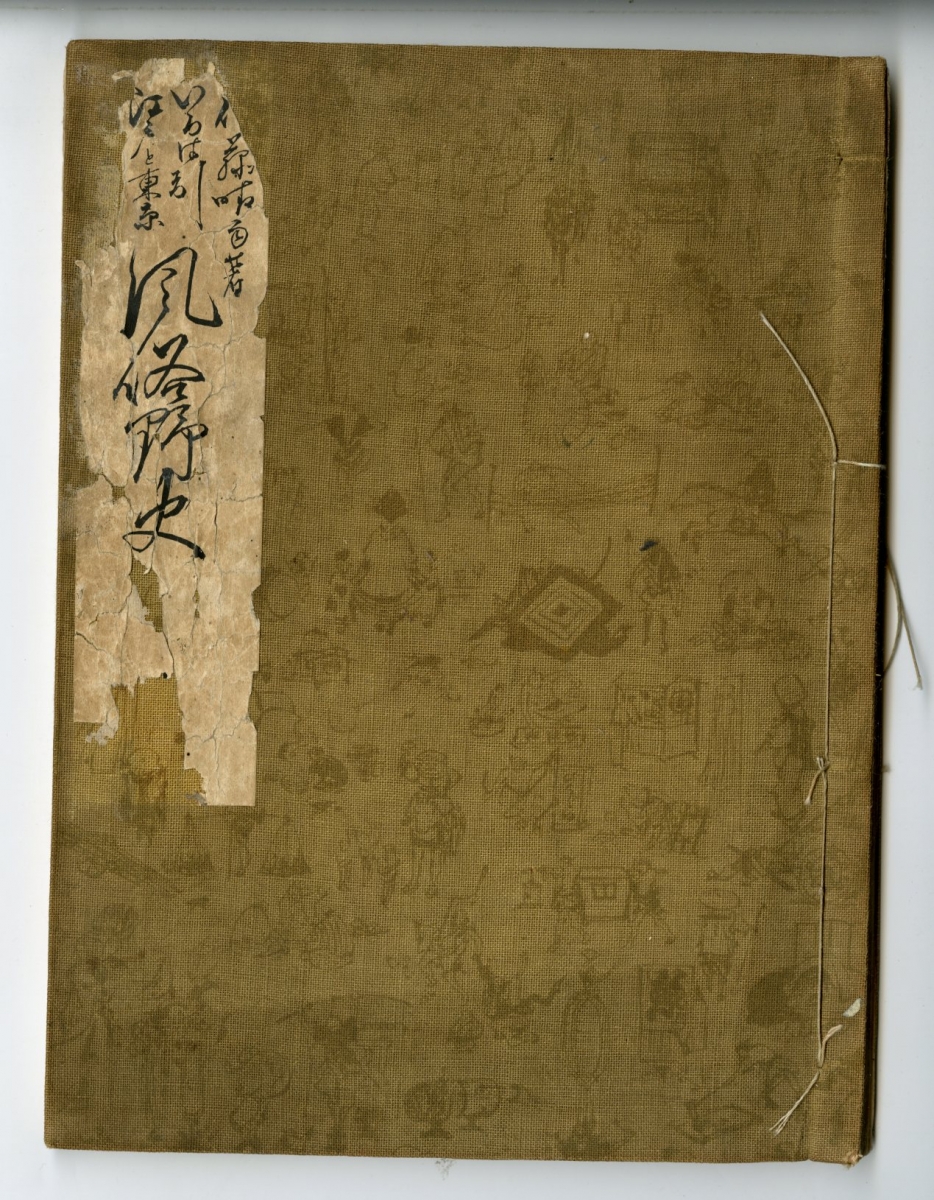 伊藤晴雨著
いろは引
江戸と東京
風俗野史